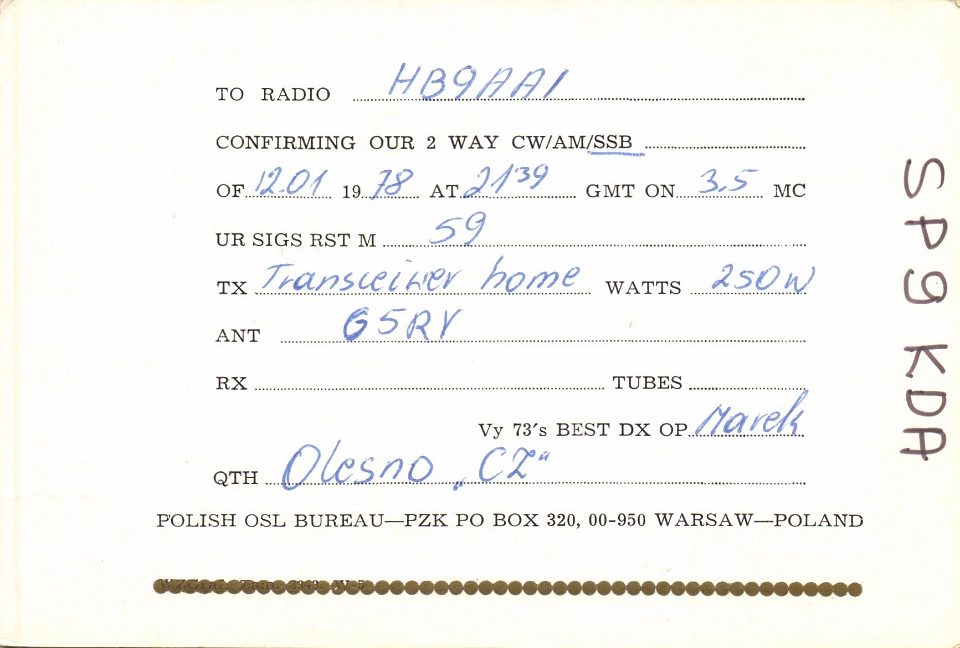 TO RADIO HB9AAI
CONFIRMING OUR 2 WAY CW/AM/SSB
OF 12.01 1978 AT 2139 GMT ON 3.5 MC
UR SIGS RST M 59
TX Transceiwer home WATTS 250W
ANT G5RV
RX TUBES
Vy 73's BEST DX OP Marek
QTH Olesno „CZ"
POLISH OSL BUREAU—PZK PO BOX 320, 00-950 WARSAW—POLAND
SP9KDA